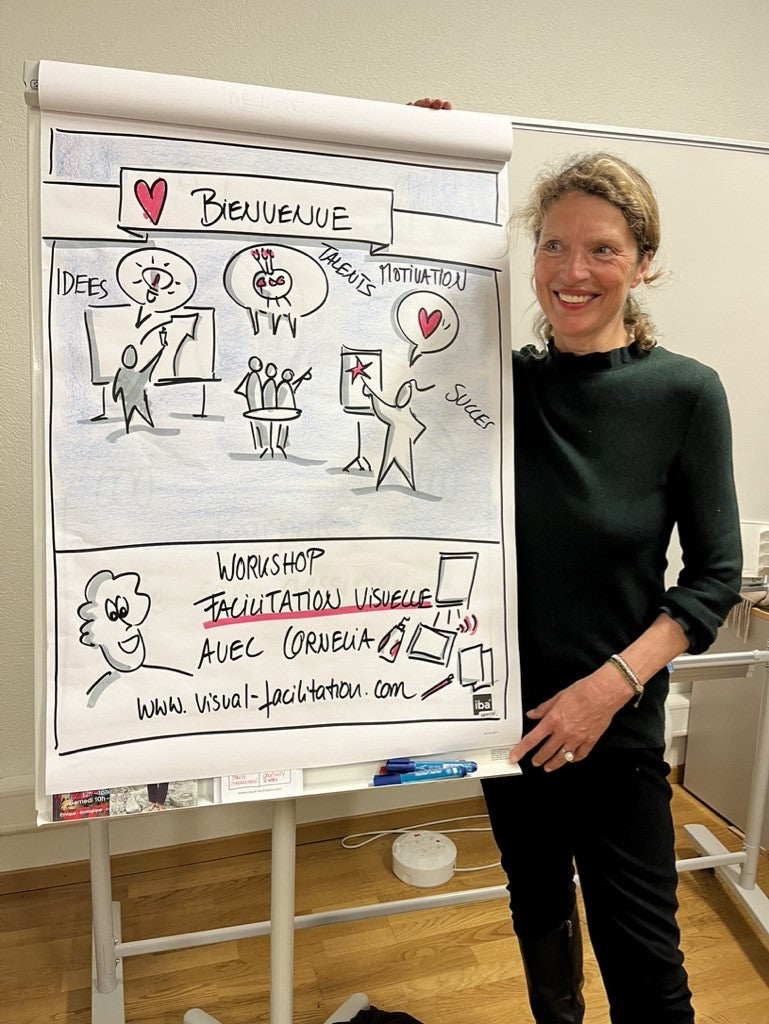 BIENVENUE
IDEES
TALENTS
MOTIVATION
SUCCES
WORKSHOP
FACILITATION VISUELLE
AVEC CORNELIA
www.visual-facilitation.com
iba
12h - 16h
Samedi 10h -